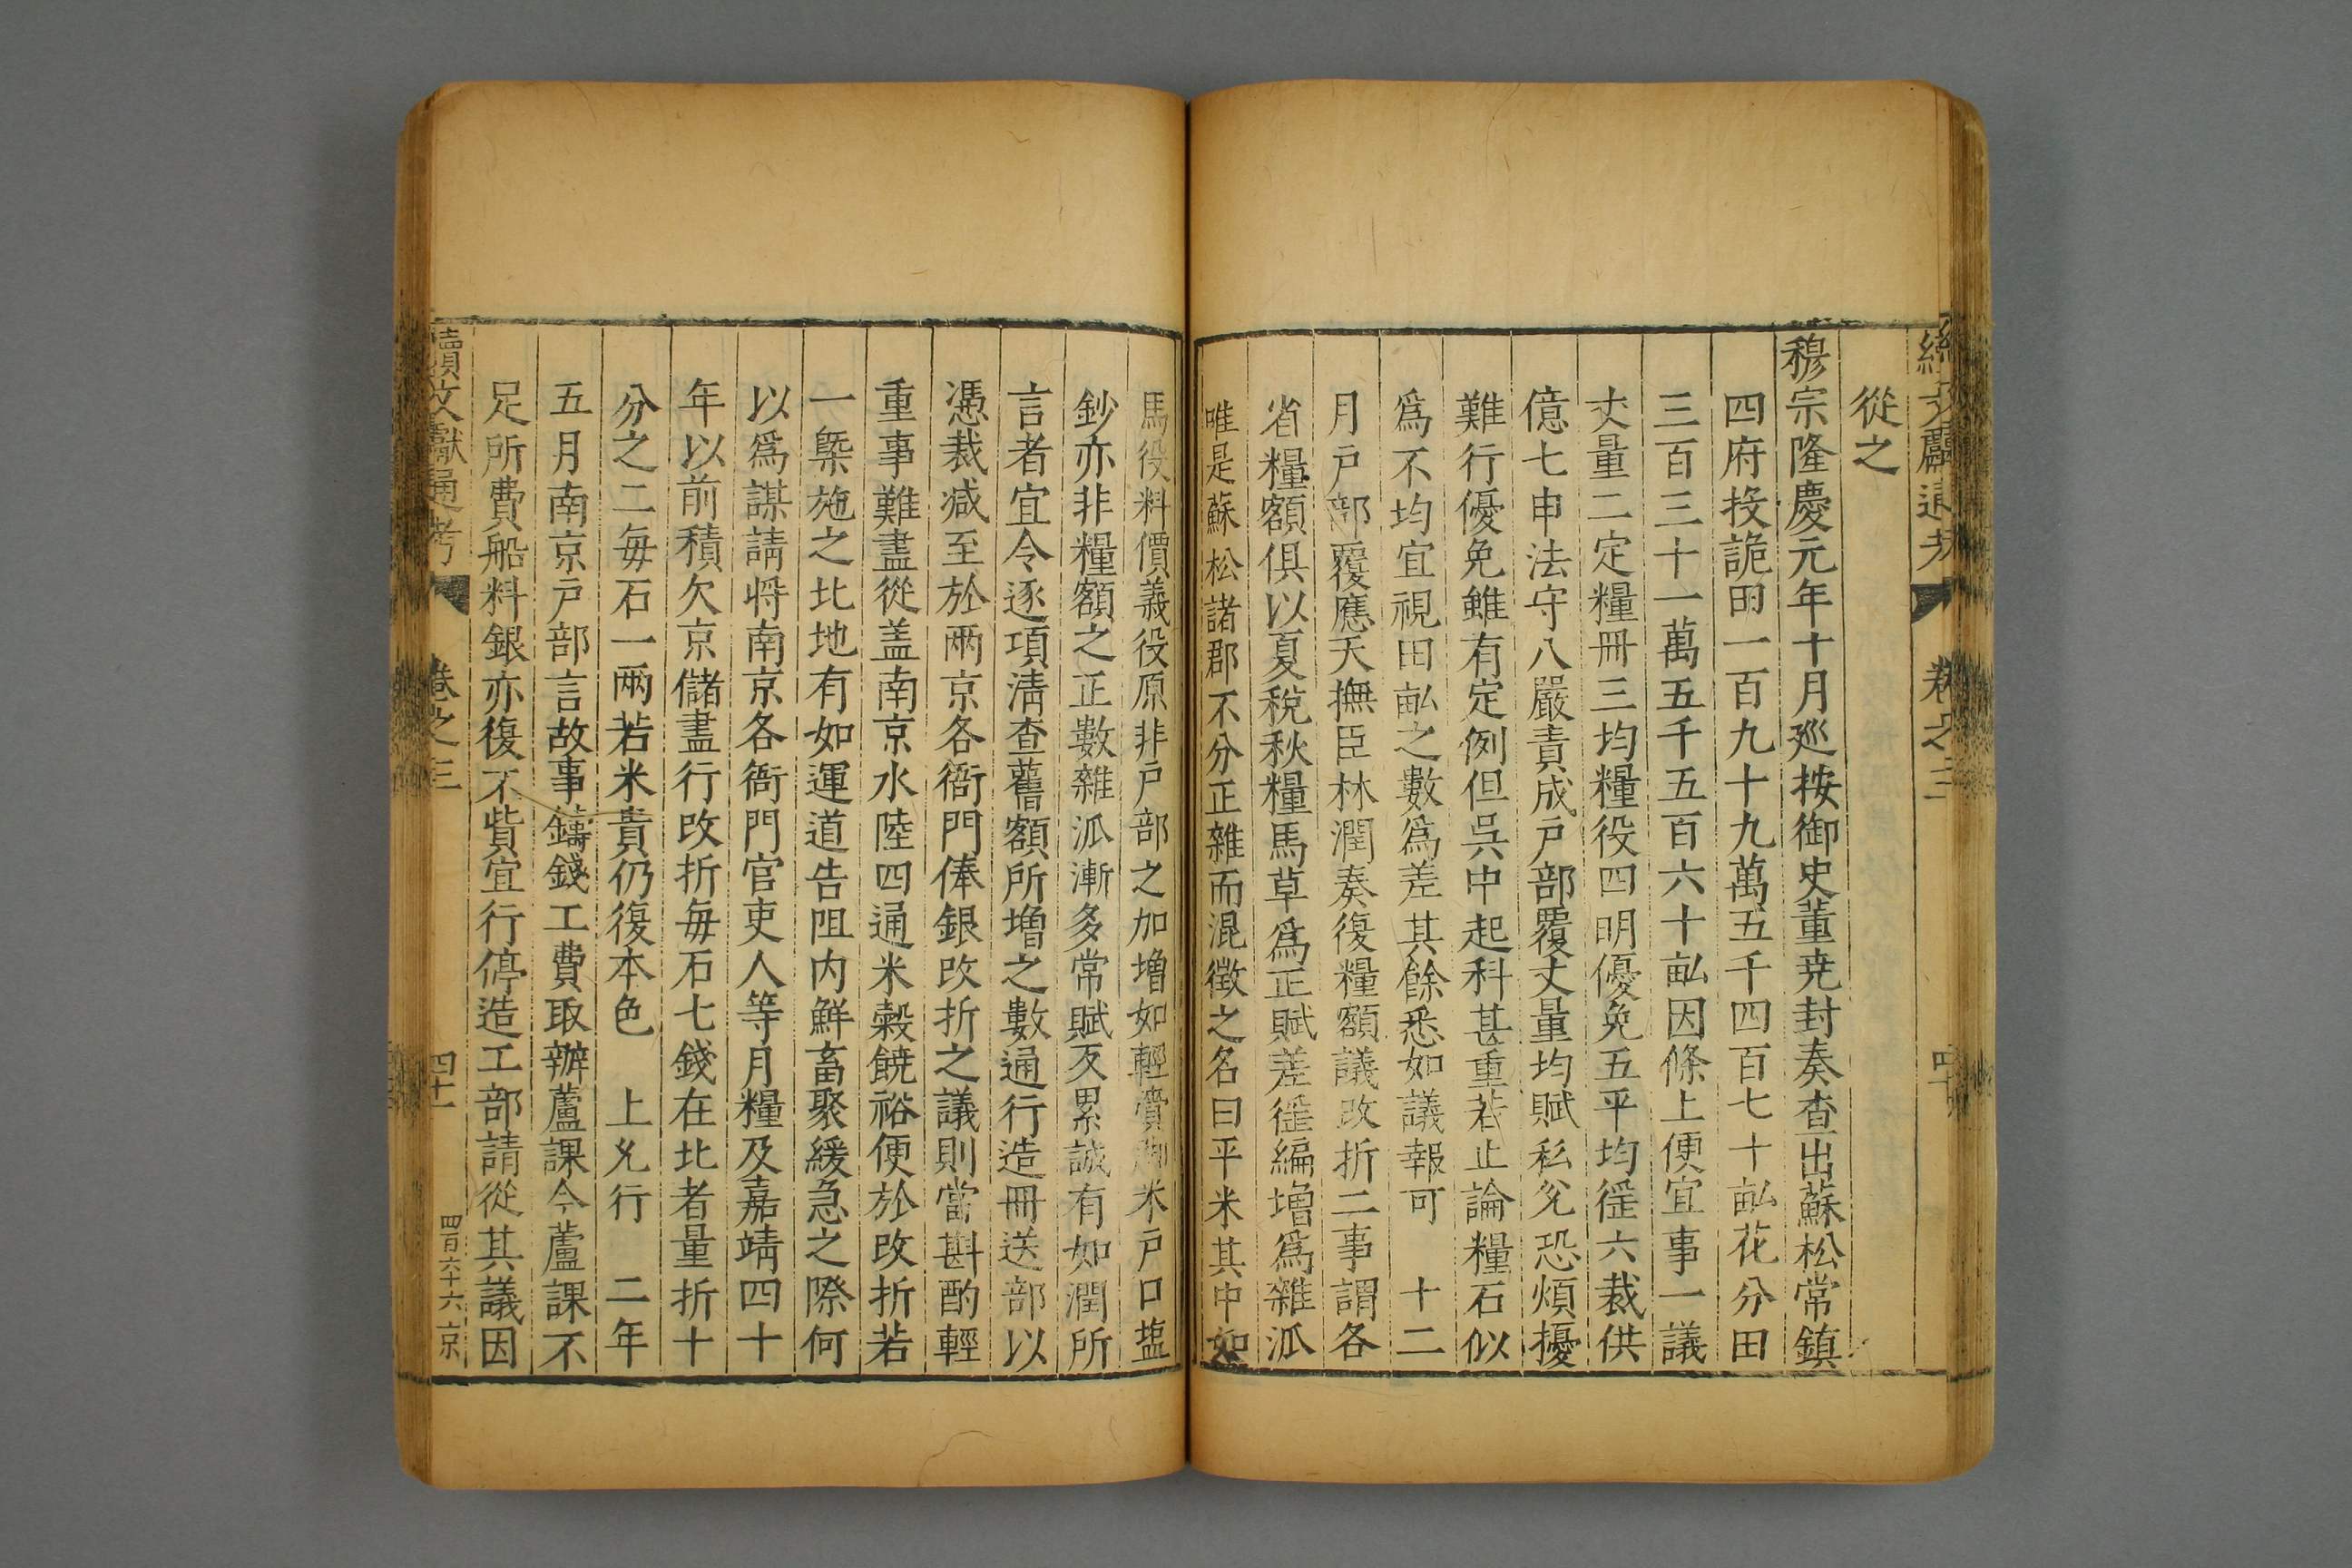 續文獻通考 卷之三 四十
從之
穆宗隆慶元年十月廵按御史董尭封奏查出蘇松常鎮
四府投詭田一百九十九萬五千四百七十畆花分田
三百三十一萬五千五百六十畆因條上便宜事一議
丈量二定糧冊三均糧役四明優免五平均徭六裁供
億七申法守八嚴責成戸部覆丈量均賦私兊恐煩擾
難行優免雖有定例但呉中起科甚重若止論糧石似
爲不均宜視田畆之數爲差其餘悉如議報可 十二
月戸部覆應天撫臣林潤奏復糧額議改折二事謂各
省糧額俱以夏稅秋糧馬草爲正賦差徭編增爲雜泒
唯是蘇松諸郡不分正雜而混徵之名曰平米其中如
馬役料價義役原非戸部之加增如輕賫脚米戸口塩
鈔亦非糧額之正數雜泒漸多常賦反累誠有如潤所
言者宜令逐項清查舊額所增之數通行造冊送部以
憑裁减至於兩京各衙門俸銀改折之議則當斟酌輕
重事難盡從盖南京水陸四通米糓饒裕便於改折若
一槩施之北地有如運道告阻内鮮畜聚緩急之際何
以爲謀請將南京各衙門官吏人等月糧及嘉靖四十
年以前積欠京儲盡行改折每石七錢在北者量折十
分之二每石一兩若米貴仍復本色 上允行 二年
五月南京戸部言故事鑄錢工費取辦蘆課今蘆課不
足所費船料銀亦復不貲宜行停造工部請從其議因
續文獻通考 卷之三 四十一 四百六十六 京